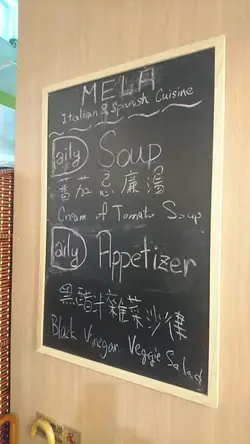 MELA
Italian & Spanish Cuisine
Daily Soup
蕃茄忌廉湯
Cream of Tomato Soup
Daily Appetizer
黑醋汁雜菜沙律
Black Vinegar Veggie Salad